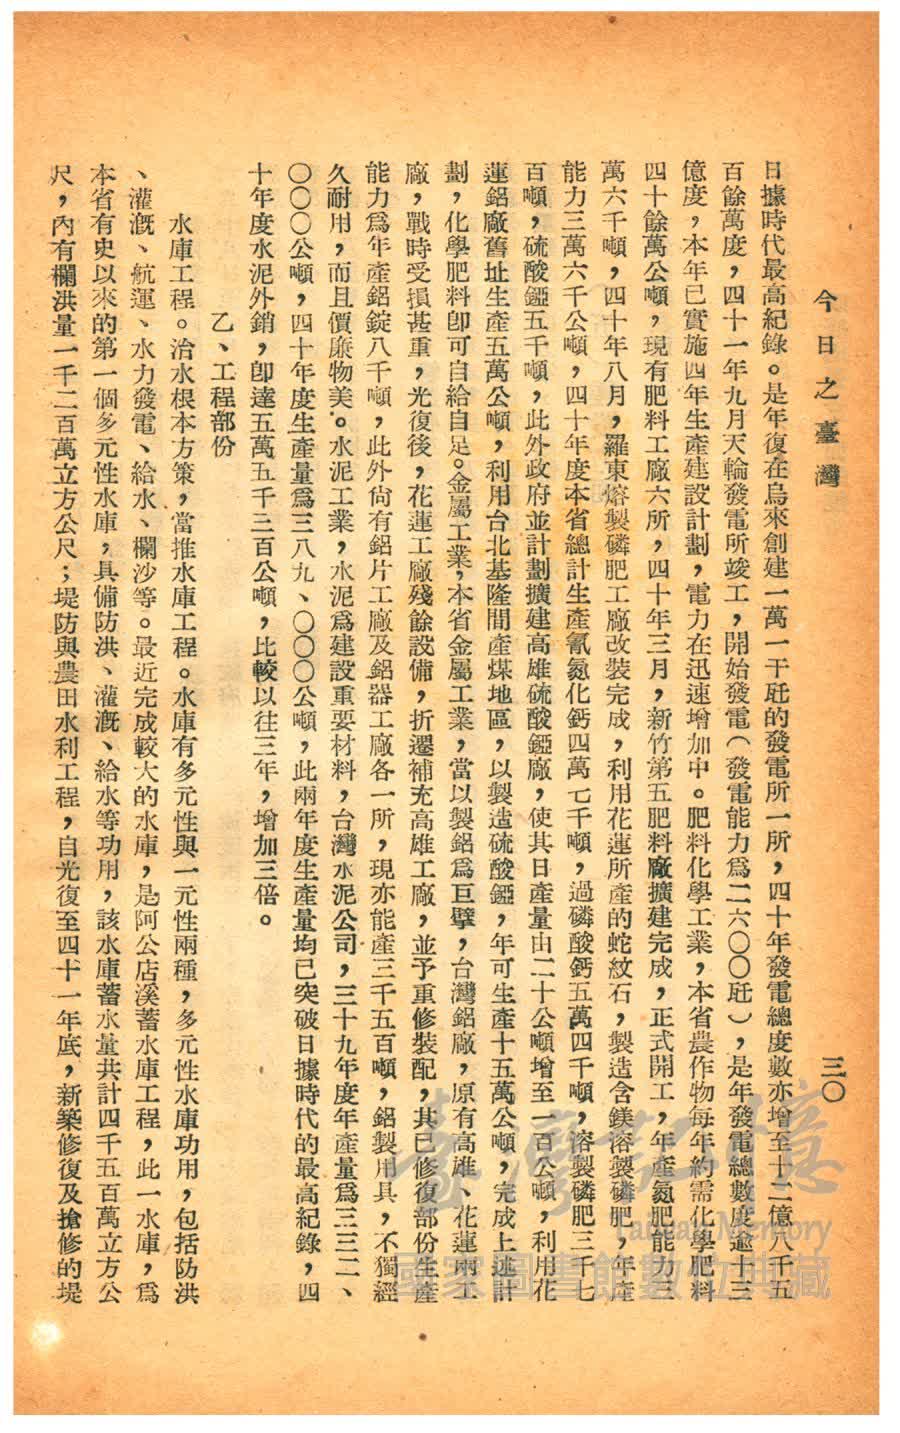 今日之臺灣
三〇
日據時代最高紀錄。是年復在烏來創建一萬一千瓩的發電所一所，四十年發電總度數亦增至十二億八千五
百餘萬度，四十一年九月天輪發電所竣工，開始發電（發電能力爲二六〇〇瓩），是年發電總數度逾十三
億度，本年已實施四年生產建設計劃，電力在迅速增加中。肥料化學工業，本省農作物每年約需化學肥料
四十餘萬公噸，現有肥料工廠六所，四十年三月，新竹第五肥料廠擴建完成，正式開工，年產氮肥能力三
萬六千噸，四十年八月，羅東熔製磷肥工廠改裝完成，利用花蓮所產的蛇紋石，製造含鎂溶製磷肥，年產
能力三萬六千公噸，四十年度本省總計生產氰氮化鈣四萬七千噸，過磷酸鈣五萬四千噸，溶製磷肥三千七
百噸，硫酸錏五千噸，此外政府並計劃擴建高雄硫酸錏廠，使其日產量由二十公噸增至一百公噸，利用花
蓮鋁廠舊址生產五萬公噸，利用台北基隆間產煤地區，以製造硫酸錏，年可生產十五萬公噸，完成上述計
劃，化學肥料卽可自給自足。金屬工業，本省金屬工業，當以製鋁爲巨擘，台灣鋁廠，原有高雄、花蓮兩工
廠，戰時受損甚重，光復後，花蓮工廠殘餘設備，折遷補充高雄工廠，並予重修裝配，其已修復部份生產
能力爲年產鋁錠八千噸，此外尙有鋁片工廠及鋁器工廠各一所，現亦能產三千五百噸，鋁製用具，不獨經
久耐用，而且價廉物美。水泥工業，水泥爲建設重要材料，台灣水泥公司，三十九年度年產量爲三三二、
〇〇〇公噸，四十年度生產量爲三八九、〇〇〇公噸，此兩年度生產量均已突破日據時代的最高紀錄，四
十年度水泥外銷，卽達五萬五千三百公噸，比較以往三年，增加三倍。
乙、工程部份
水庫工程。治水根本方策，當推水庫工程。水庫有多元性與一元性兩種，多元性水庫功用，包括防洪
、灌漑、航運、水力發電、給水、欄沙等。最近完成較大的水庫，是阿公店溪蓄水庫工程，此一水庫，爲
本省有史以來的第一個多元性水庫，具備防洪、灌漑、給水等功用，該水庫蓄水量共計四千五百萬立方公
尺，內有欄洪量一千二百萬立方公尺；堤防與農田水利工程，自光復至四十一年底，新築修復及搶修的堤
臺灣記憶
Taiwan Memory
國家圖書館數位典藏